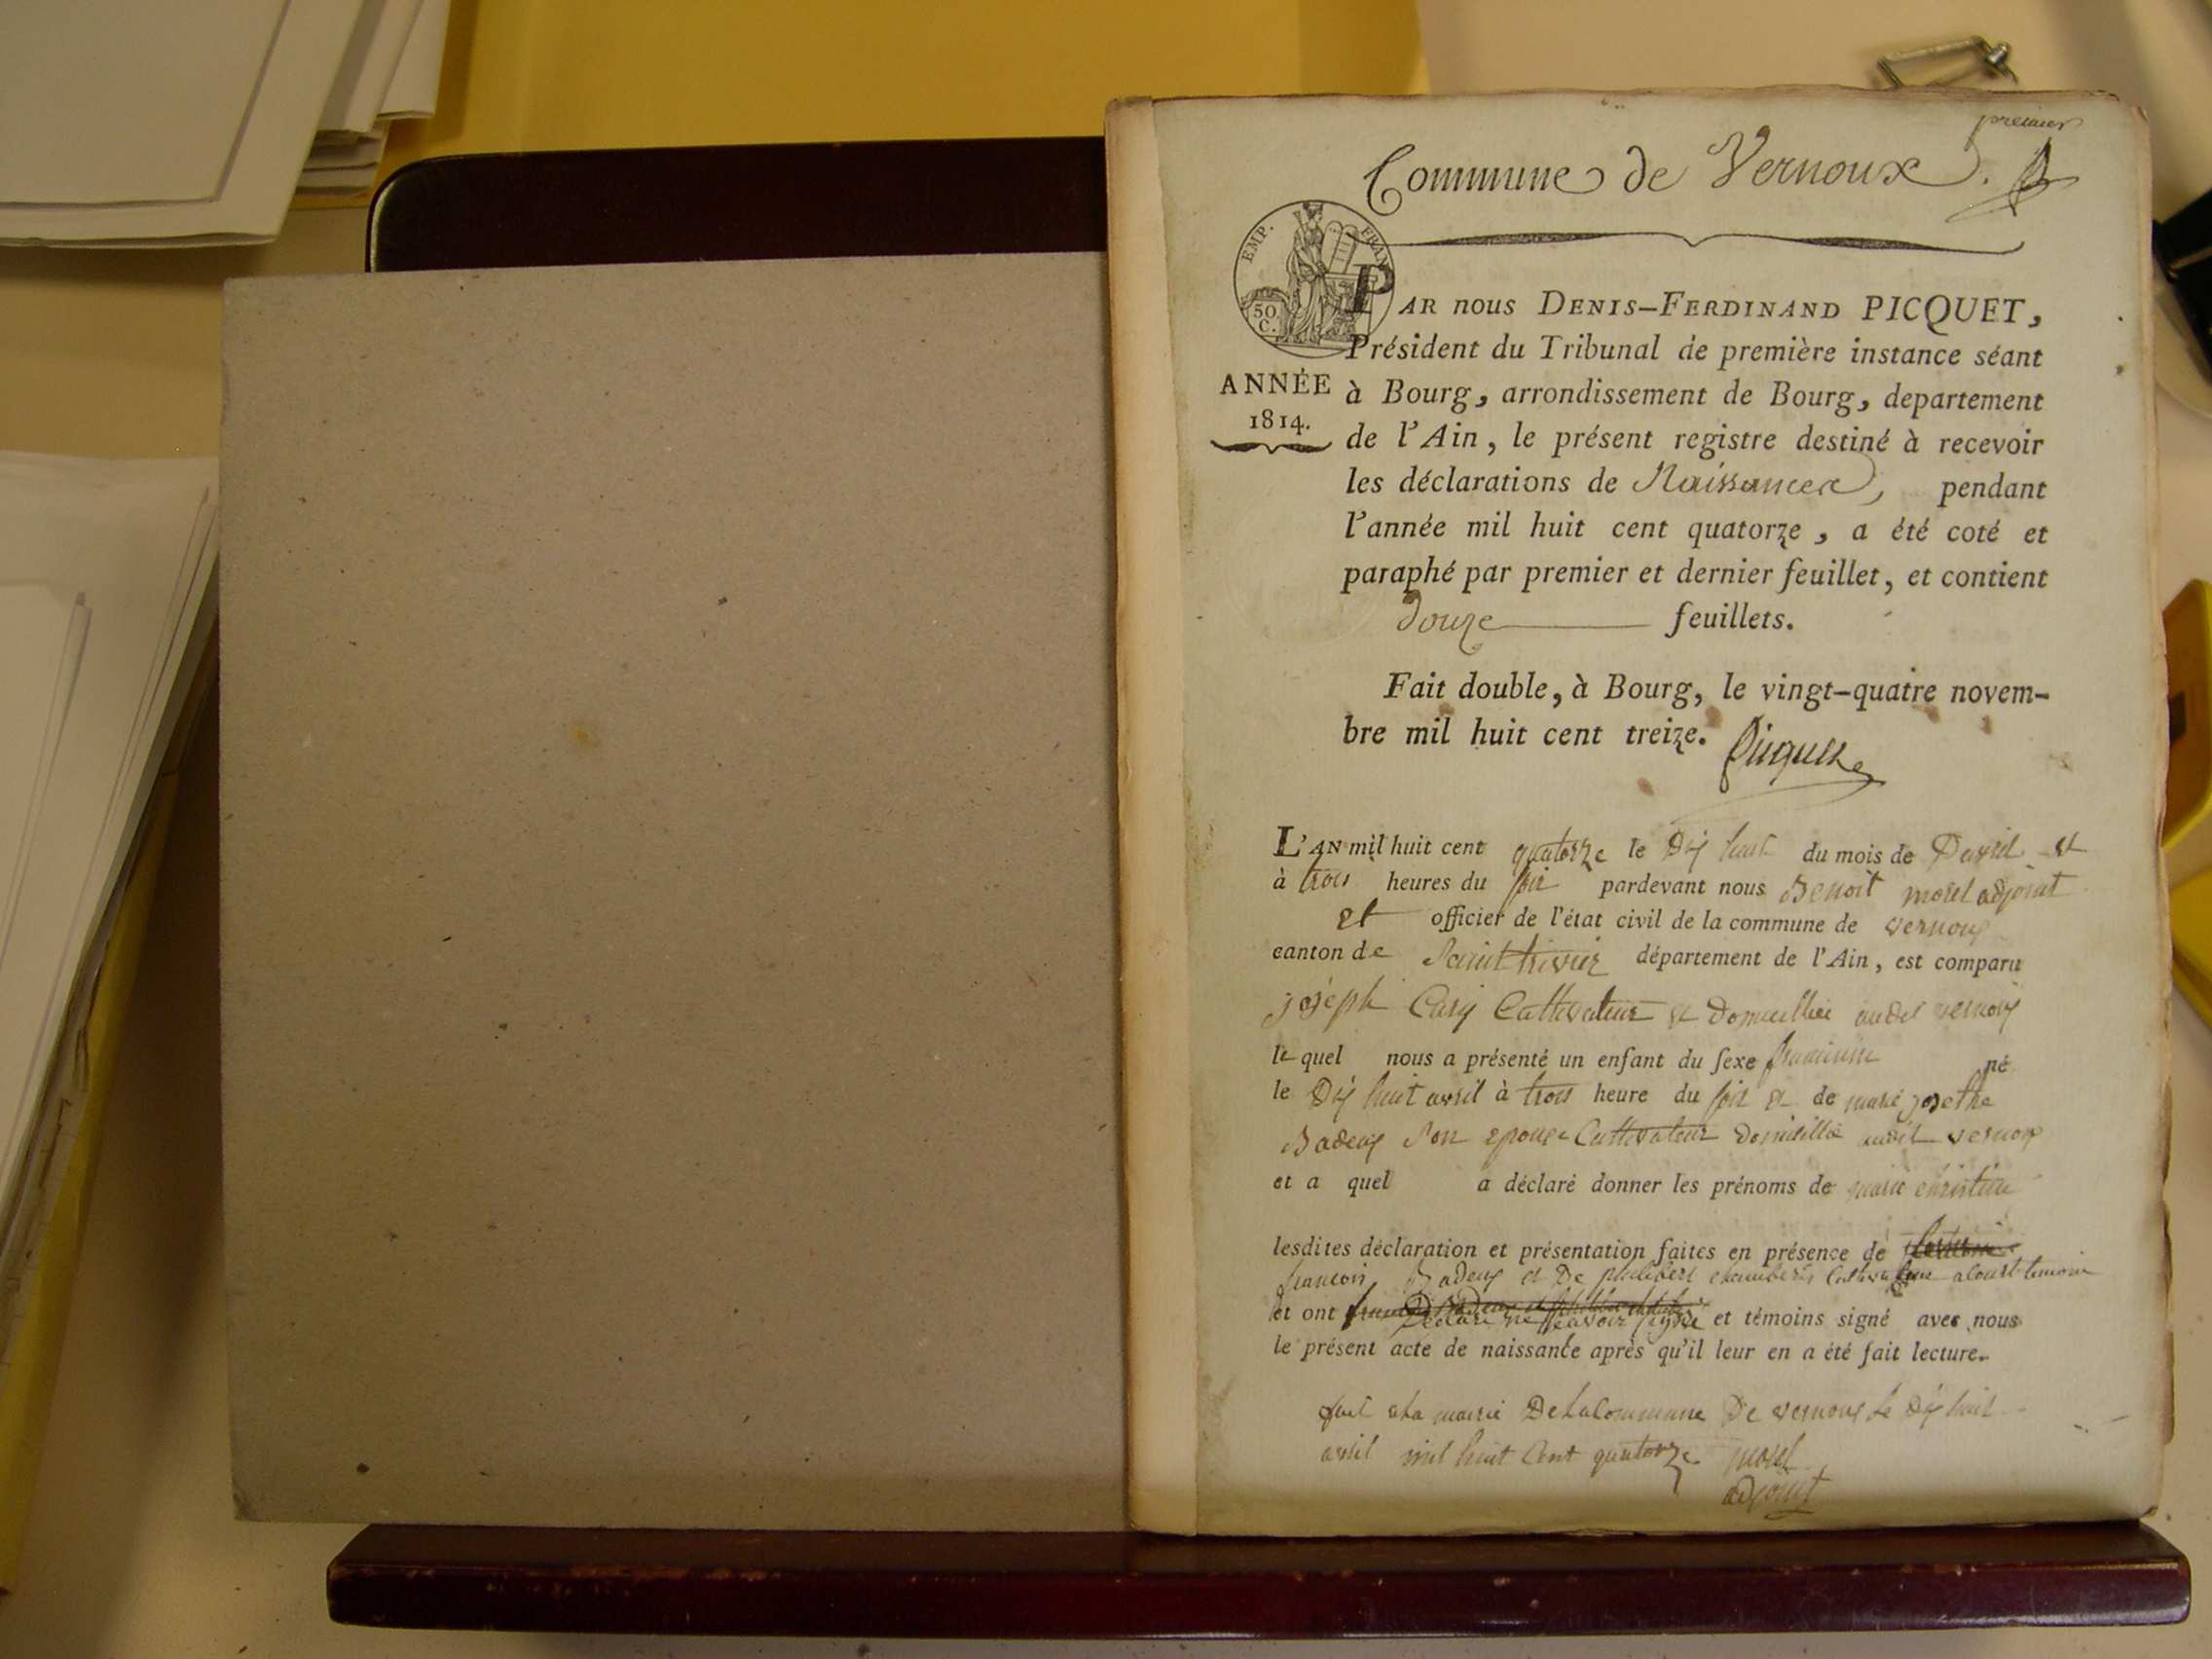 premier
Commune de Vernoux.
EMP. FRAN
50
C.
PAR nous DENIS-FERDINAND PICQUET,
Président du Tribunal de première instance séant
ANNÉE
1814.
à Bourg, arrondissement de Bourg, departement
de l'Ain, le présent registre destiné à recevoir
les déclarations de Naissances, pendant
l'année mil huit cent quatorze, a été coté et
paraphé par premier et dernier feuillet, et contient
douze feuillets.
Fait double, à Bourg, le vingt-quatre novem-
bre mil huit cent treize. Picquet
L'AN mil huit cent quatorze le Dix huit du mois de Davril et
à trois heures du soir pardevant nous Benoit morel adjoint
et officier de l'état civil de la commune de vernoux
canton de Saint trivier département de l'Ain, est comparu
joséph Cultivateur et Domicillié audit vernoux
le quel nous a présenté un enfant du sexe né
le Dix huit avril à trois heure du soir et de marie josethe
Badoux Son epouse Cultivateur Domicillié audit vernoux
et a quel a déclaré donner les prénoms de marie christine
lesdites déclaration et présentation faites en présence de
francois Badoux et De philibert Cultivateur temoin
et ont Déclaré ne savoir signé et témoins signé avec nous
le présent acte de naissance après qu'il leur en a été fait lecture.
fait ala mairie Delacommune De vernoux le Dix huit
avril mil huit Cent quatorze morel
adjoint